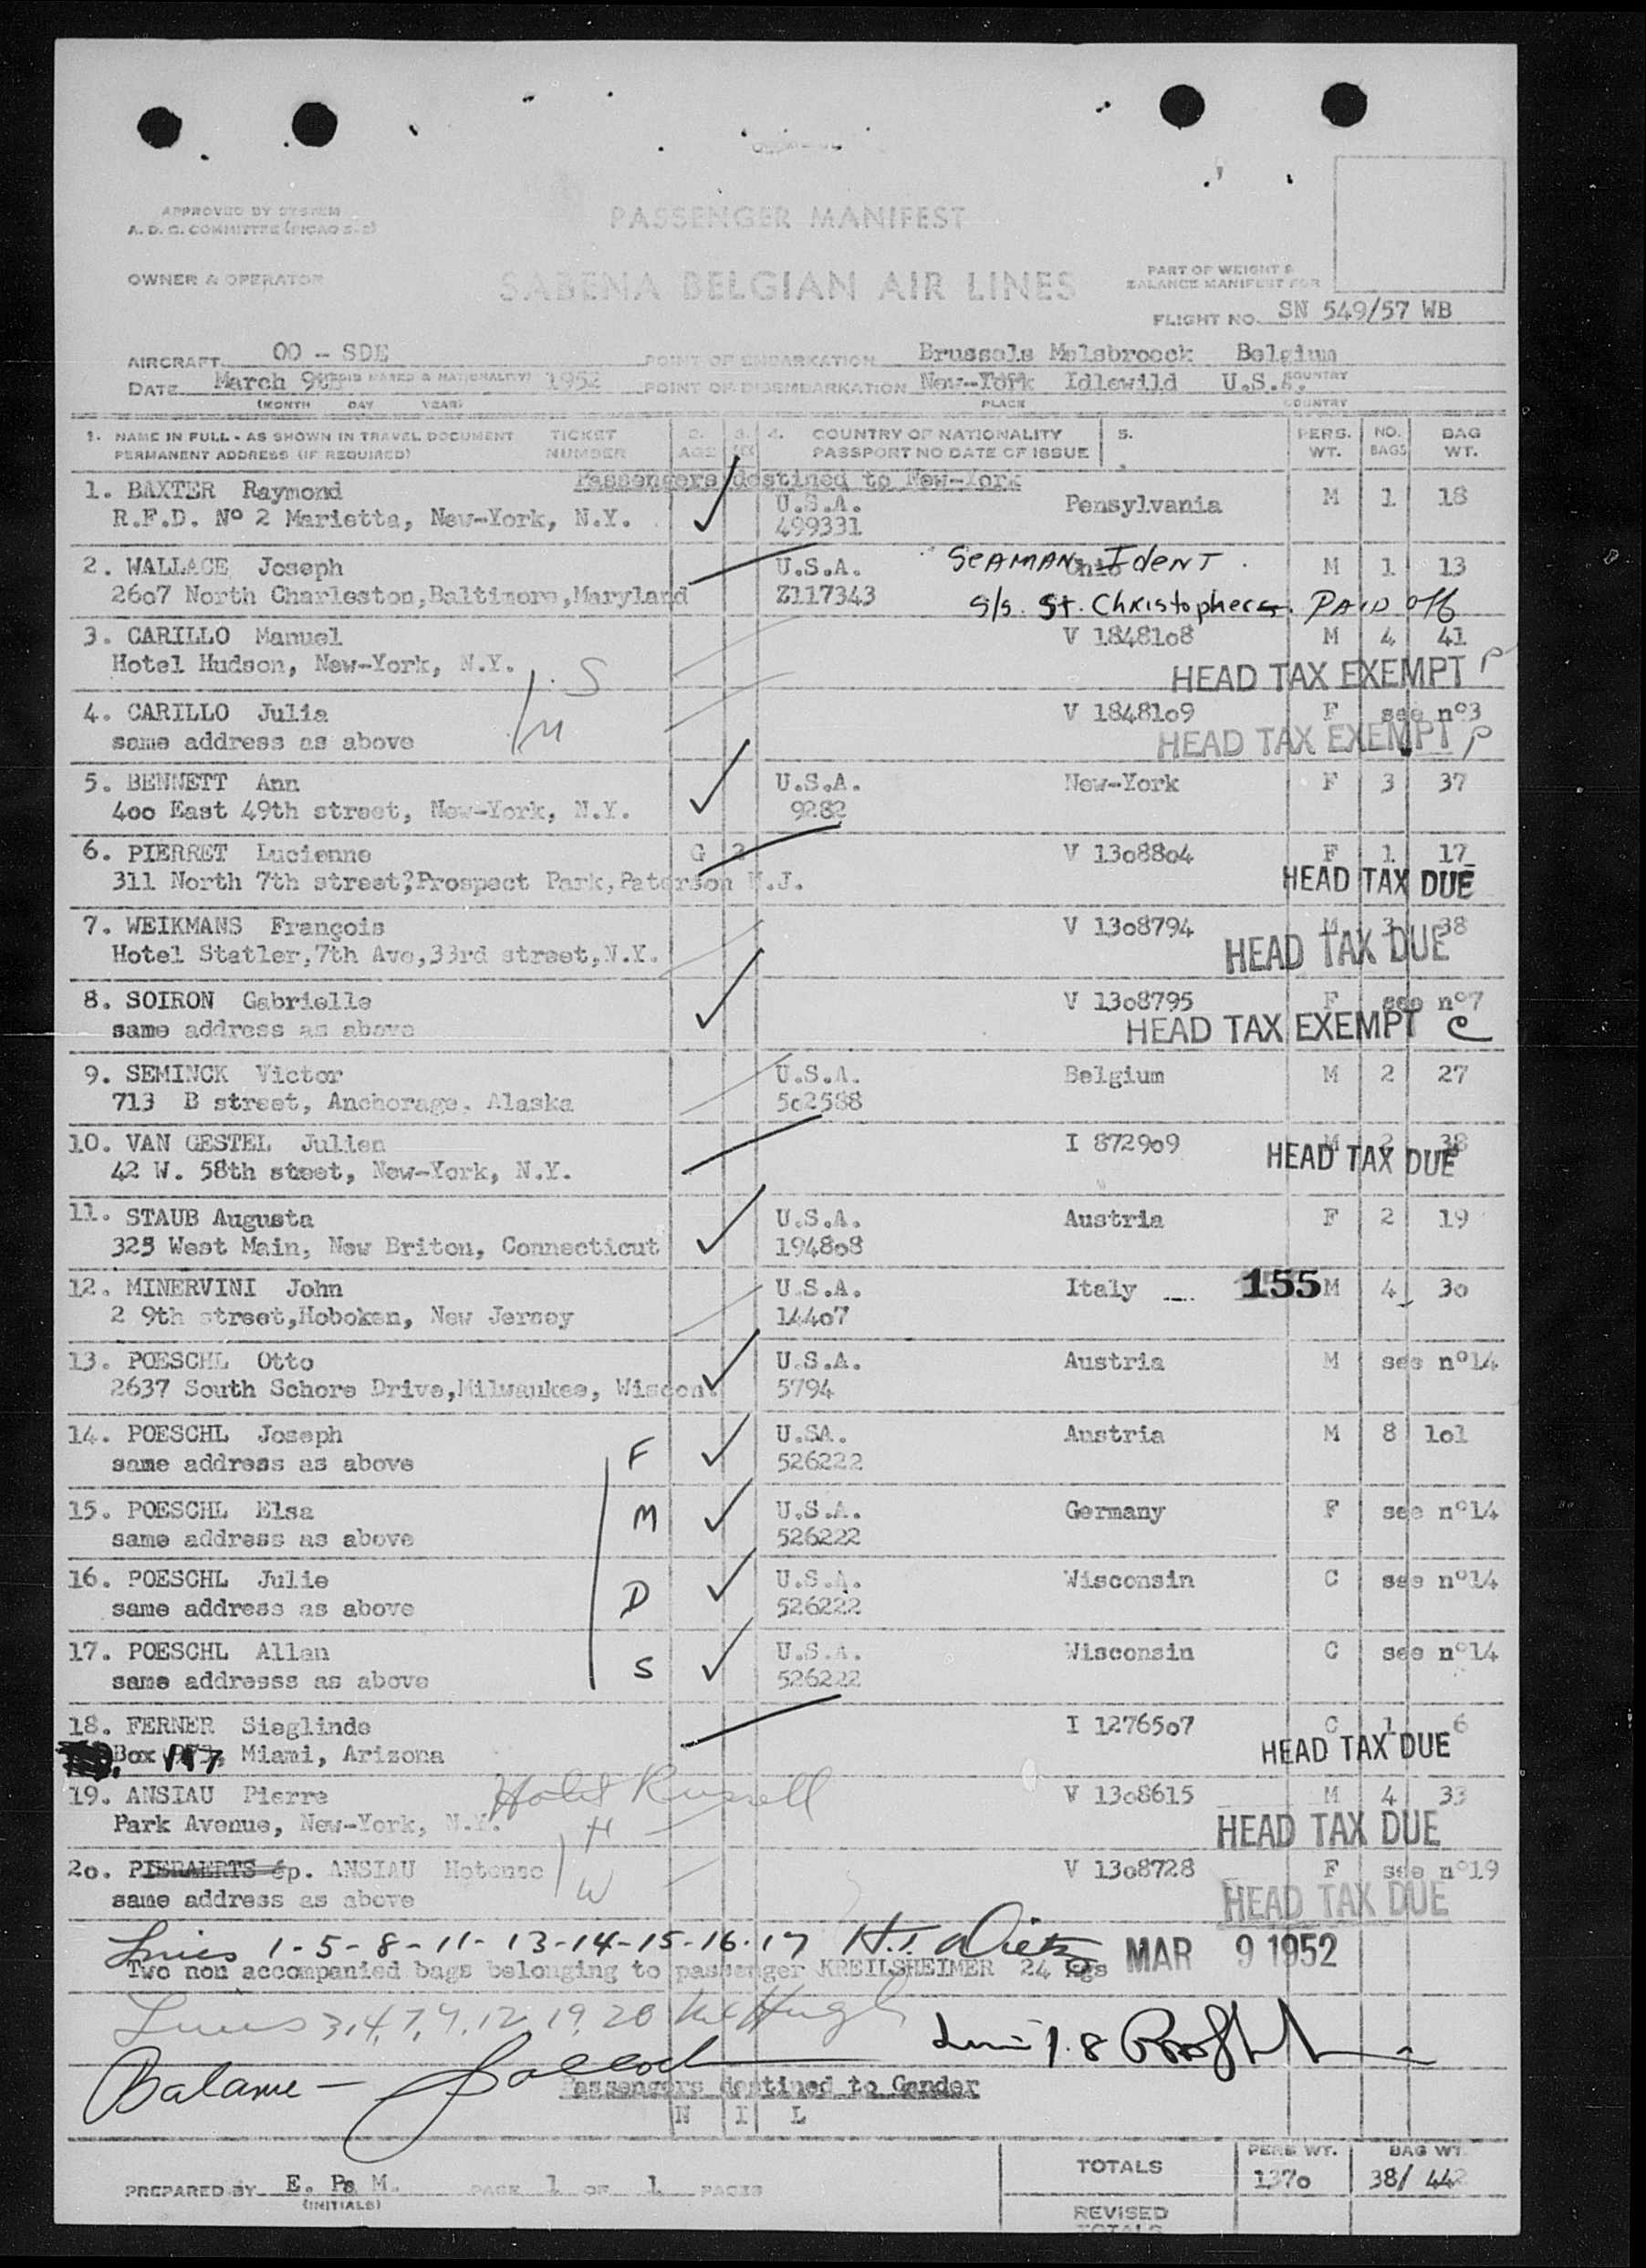 APPROVED BY SYSTEM
A. D. C. COMMITTEE (PICAO S-2)
PASSENGER MANIFEST
OWNER & OPERATOR
SABENA BELGIAN AIR LINES
PART OF WEIGHT &
BALANCE MANIFEST FOR
FLIGHT NO. SN 549/57 WB
AIRCRAFT OO - SDE POINT OF EMBARKATION Brussels Melsbroock Belgium
DATE March 9th 1952 POINT OF DISEMBARKATION New-York Idlewild U.S.A. COUNTRY
(MONTH DAY YEAR) PLACE COUNTRY
1. NAME IN FULL - AS SHOWN IN TRAVEL DOCUMENT TICKET 2. 3. 4. COUNTRY OF NATIONALITY 5. PERS. NO. BAG
PERMANENT ADDRESS (IF REQUIRED) NUMBER AGE SEX PASSPORT NO DATE OF ISSUE WT. BAGS WT.
Passengers destined to New-York
1. BAXTER Raymond U.S.A. Pensylvania M 1 18
R.F.D. Nº 2 Marietta, New-York, N.Y. 499331
2. WALLACE Joseph U.S.A. Ohio SEAMAN IdenT. M 1 13
2607 North Charleston,Baltimore,Maryland Z117343 S/s. St. Christophers. PAID off
3. CARILLO Manuel V 1848108 M 4 41
Hotel Hudson, New-York, N.Y. S HEAD TAX EXEMPT P
4. CARILLO Julia V 1848109 F see nº3
same address as above M HEAD TAX EXEMPT P
5. BENNETT Ann U.S.A. New-York F 3 37
400 East 49th street, New-York, N.Y. 9282
6. PIERRET Lucienne G 2 V 1308804 F 1 17
311 North 7th street,Prospect Park,Paterson N.J. HEAD TAX DUE
7. WEIKMANS François V 1308794 M 3 38
Hotel Statler,7th Ave,33rd street,N.Y. HEAD TAX DUE
8. SOIRON Gabrielle V 1308795 F see nº7
same address as above HEAD TAX EXEMPT C
9. SEMINCK Victor U.S.A. Belgium M 2 27
713 B street, Anchorage, Alaska 502588
10. VAN GESTEL Julien I 872909 M 2 38
42 W. 58th steet, New-York, N.Y. HEAD TAX DUE
11. STAUB Augusta U.S.A. Austria F 2 19
325 West Main, New Briton, Connecticut 194808
12. MINERVINI John U.S.A. Italy 155 M 4 30
2 9th street,Hoboken, New Jersey 14407
13. POESCHL Otto U.S.A. Austria M see nº14
2637 South Schore Drive,Milwaukee, Wiscon. 5794
14. POESCHL Joseph U.SA. Austria M 8 101
same address as above F 526222
15. POESCHL Elsa U.S.A. Germany F see nº14
same address as above M 526222
16. POESCHL Julie U.S.A. Wisconsin C see nº14
same address as above D 526222
17. POESCHL Allan U.S.A. Wisconsin C see nº14
same addresss as above S 526222
18. FERNER Sieglinde I 1276507 C 1 6
Box 117, Miami, Arizona HEAD TAX DUE
19. ANSIAU Pierre Hotel Russell V 1308615 M 4 33
Park Avenue, New-York, N.Y. H HEAD TAX DUE
20. PIERAERTS ép. ANSIAU Hotense V 1308728 F see nº19
same address as above W HEAD TAX DUE
Lines 1-5-8-11-13-14-15-16-17 H.T. Dietz MAR 9 1952
Two non accompanied bags belonging to passenger KREILSHEIMER 24 kgs
Lines 3,4,7,9,12,19,20 McHugh
Line 1.8
Balance -
Passengers destined to Gander
N I L
TOTALS PERS WT. 1370 BAG WT. 38/ 442
PREPARED BY E. Pa M. PAGE 1 OF 1 PAGES
(INITIALS)
REVISED
TOTALS